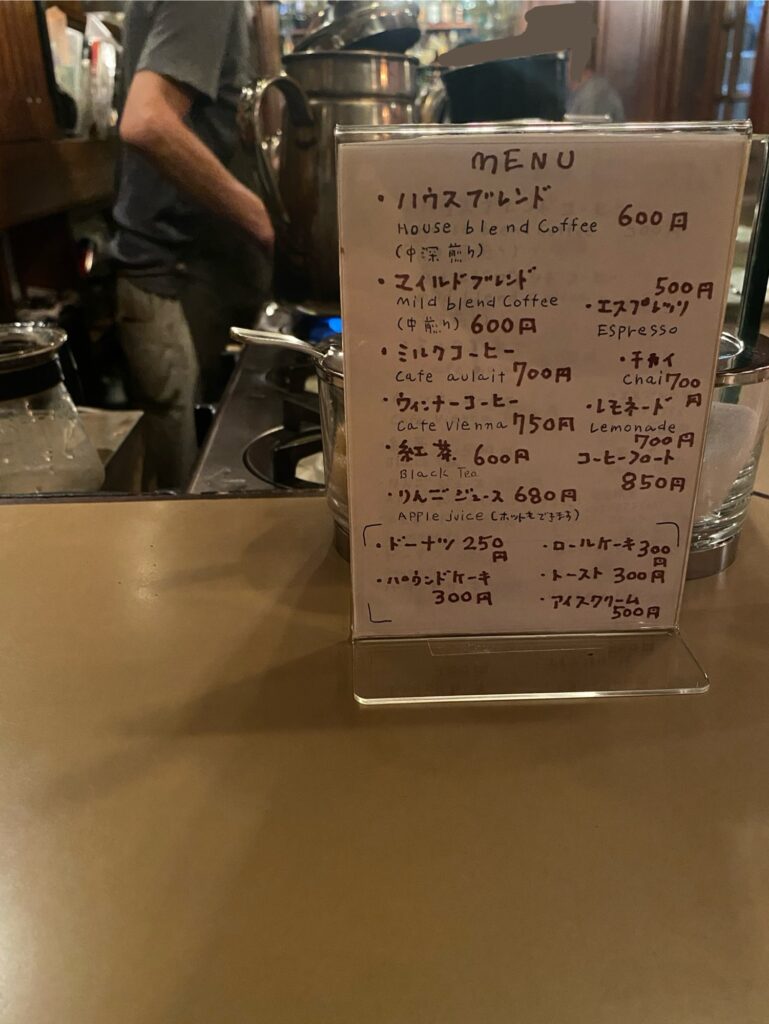 MENU
・ハウスブレンド
House blend Coffee 600円
(中深煎り)
・マイルドブレンド
mild blend Coffee
(中煎り) 600円
・ミルクコーヒー
Cafe aulait 700円
・ウィンナーコーヒー
Cafe Vienna 750円
・紅茶 600円
Black Tea
・りんごジュース 680円
Apple juice (ホットもできます)
500円
・エスプレッソ
Espresso
・チャイ
Chai 700円
・レモネード
Lemonade
700円
コーヒーフロート
850円
・ドーナツ 250円
・パウンドケーキ
300円
・ロールケーキ 300円
・トースト 300円
・アイスクリーム
500円